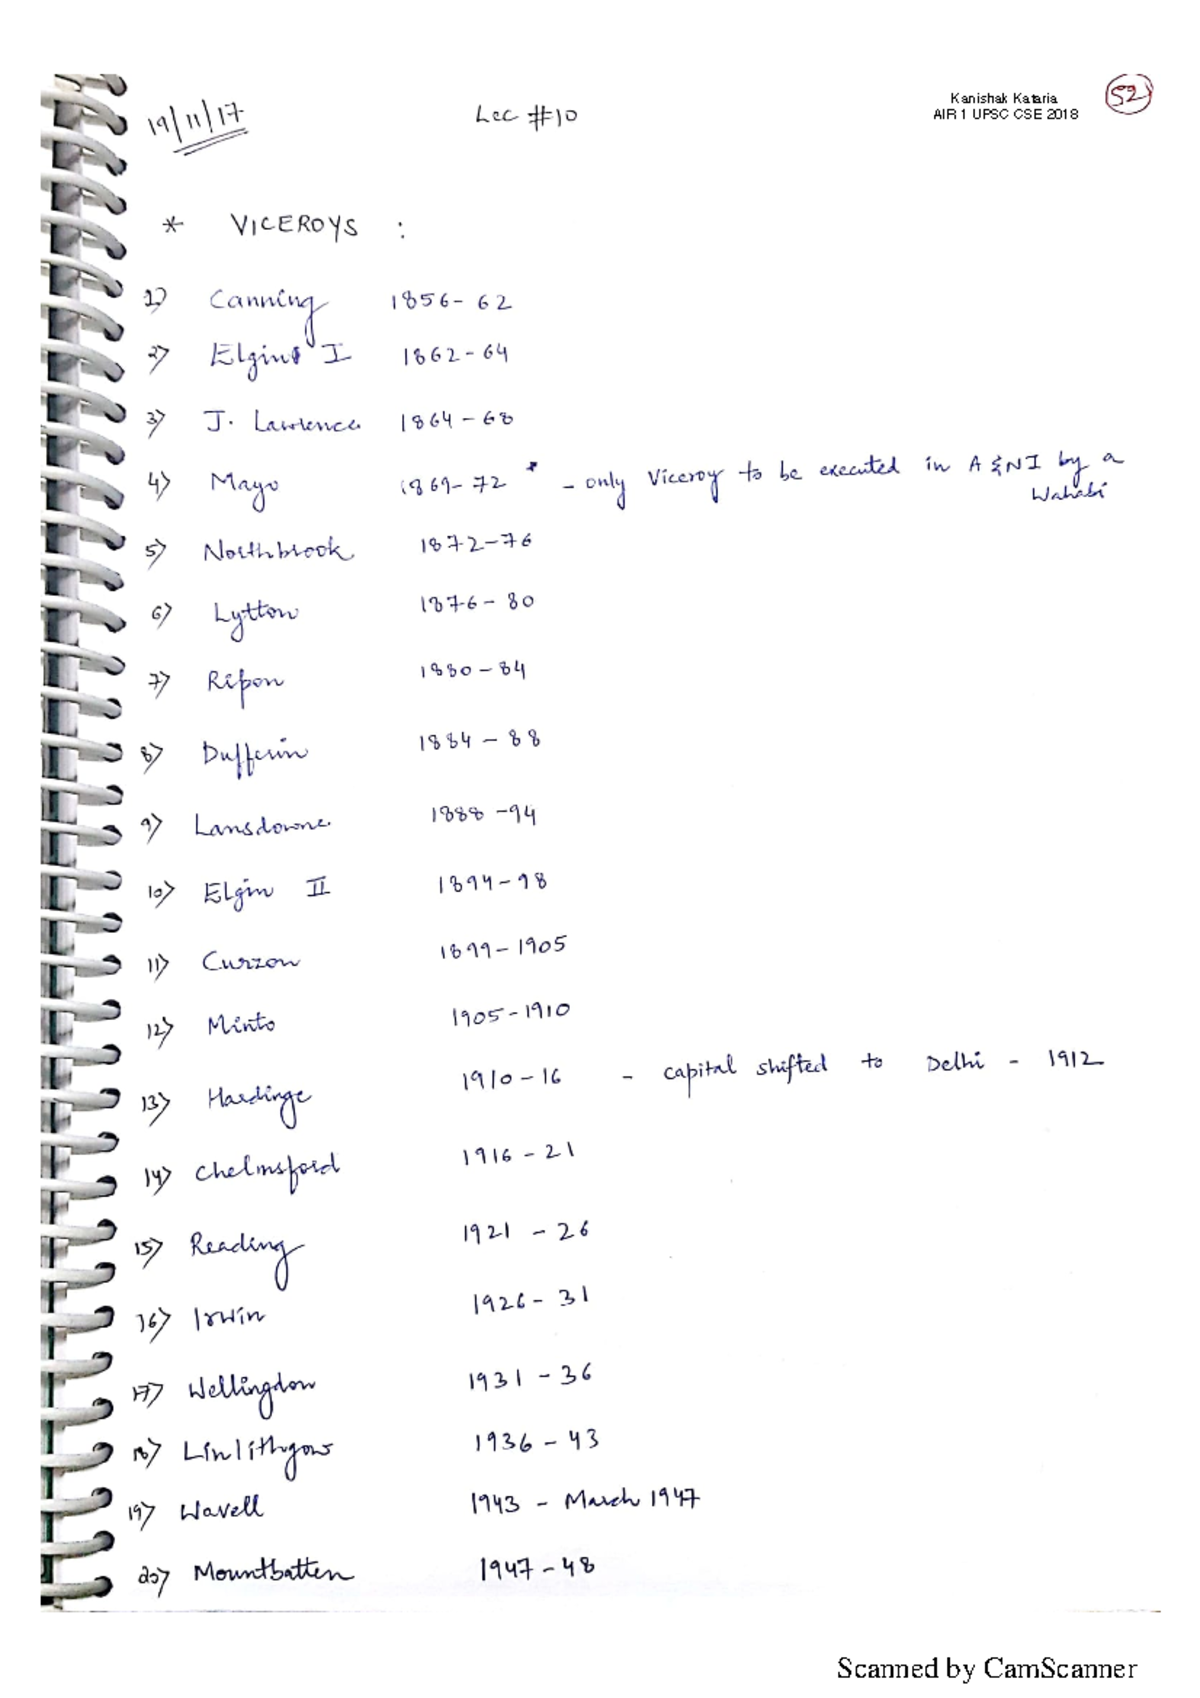 19/11/17 Lec #10 Kanishak Kataria 52
AIR 1 UPSC CSE 2018
* VICEROYS :
1) Canning 1856-62
2) Elgin I 1862-64
3) J. Lawrence 1864-68
4) Mayo 1869-72 * - only Viceroy to be executed in A&NI by a
Wahabi
5) Northbrook 1872-76
6) Lytton 1876-80
7) Ripon 1880-84
8) Dufferin 1884-88
9) Lansdowne 1888-94
10) Elgin II 1894-98
11) Curzon 1899-1905
12) Minto 1905-1910
13) Hardinge 1910-16 - capital shifted to Delhi - 1912
14) Chelmsford 1916-21
15) Reading 1921-26
16) Irwin 1926-31
17) Wellingdon 1931-36
18) Linlithgow 1936-43
19) Wavell 1943 - March 1947
20) Mountbatten 1947-48
Scanned by CamScanner